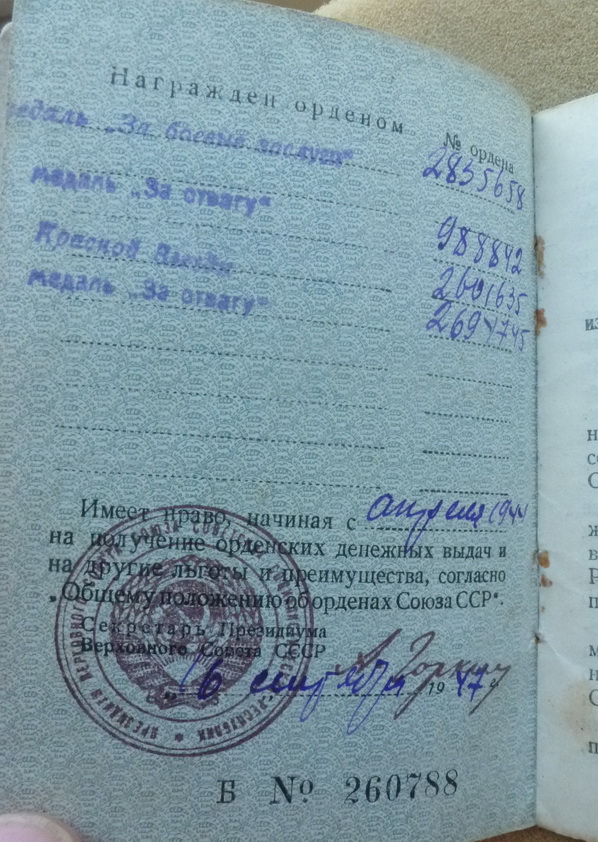 Награжден орденом
№ ордена
медаль „За боевые заслуги" 2835658
медаль „За отвагу" 988842
Красной Звезды 2601635
медаль „За отвагу" 2694745
Имеет право, начиная с апреля 1944
на получение орденских денежных выдач и
на другие льготы и преимущества, согласно
„Общему положению об орденах Союза ССР".
Секретарь Президиума
Верховного Совета СССР
А. Горкин
„16 сентября 1947 г.
Б № 260788